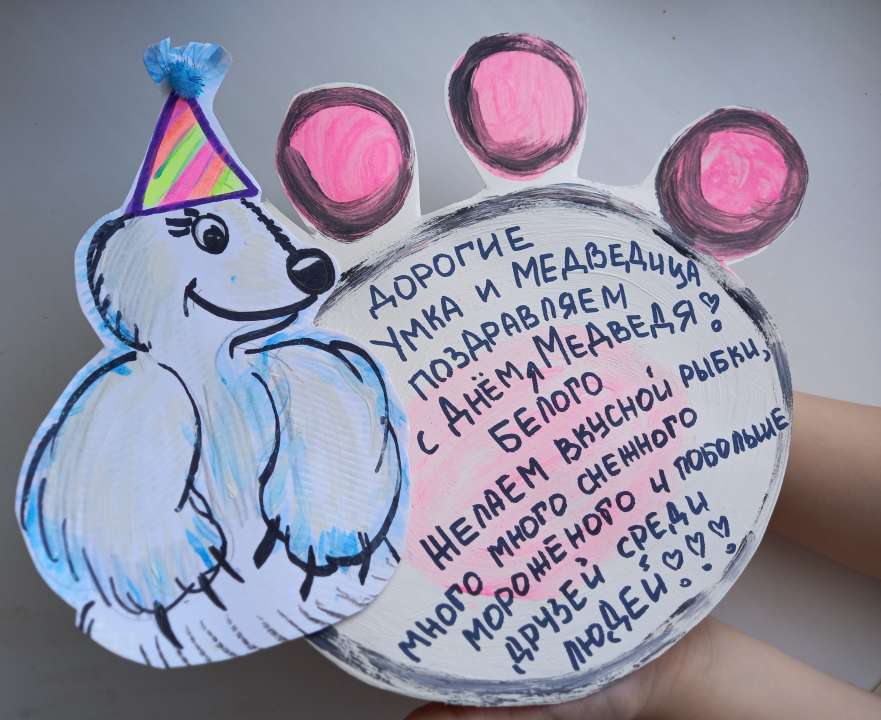 ДОРОГИЕ
УМКА И МЕДВЕДИЦА
ПОЗДРАВЛЯЕМ
С ДНЁМ, МЕДВЕДЯ!
БЕЛОГО
ЖЕЛАЕМ ВКУСНОЙ РЫБКИ,
МНОГО МНОГО СНЕЖНОГО
МОРОЖЕНОГО И ПОБОЛЬШЕ
ДРУЗЕЙ СРЕДИ
ЛЮДЕЙ!!!